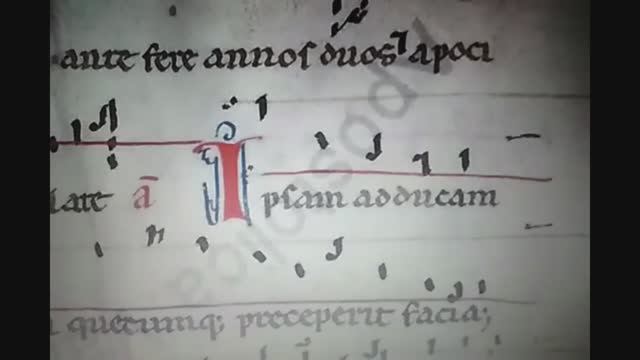 ante fere annos duos apoci
tate ā Ipsam adducam
quecunq; preceperit facia;